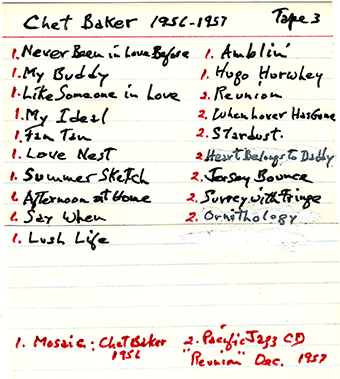 Chet Baker 1956-1957 Tape 3
1. Never Been in Love Before
1. My Buddy
1. Like Someone in Love
1. My Ideal
1. Fan Tan
1. Love Nest
1. Summer Sketch
1. Afternoon at Home
1. Say When
1. Lush Life
1. Amblin'
1. Hugo Hurwhey
2. Reunion
2. When Lover Has Gone
2. Stardust.
2. Heart Belongs to Daddy
2. Jersey Bounce
2. Surrey with Fringe
2. Ornithology
1. Mosaic: Chet Baker
1956
2. Pacific Jazz CD
"Reunion" Dec. 1957